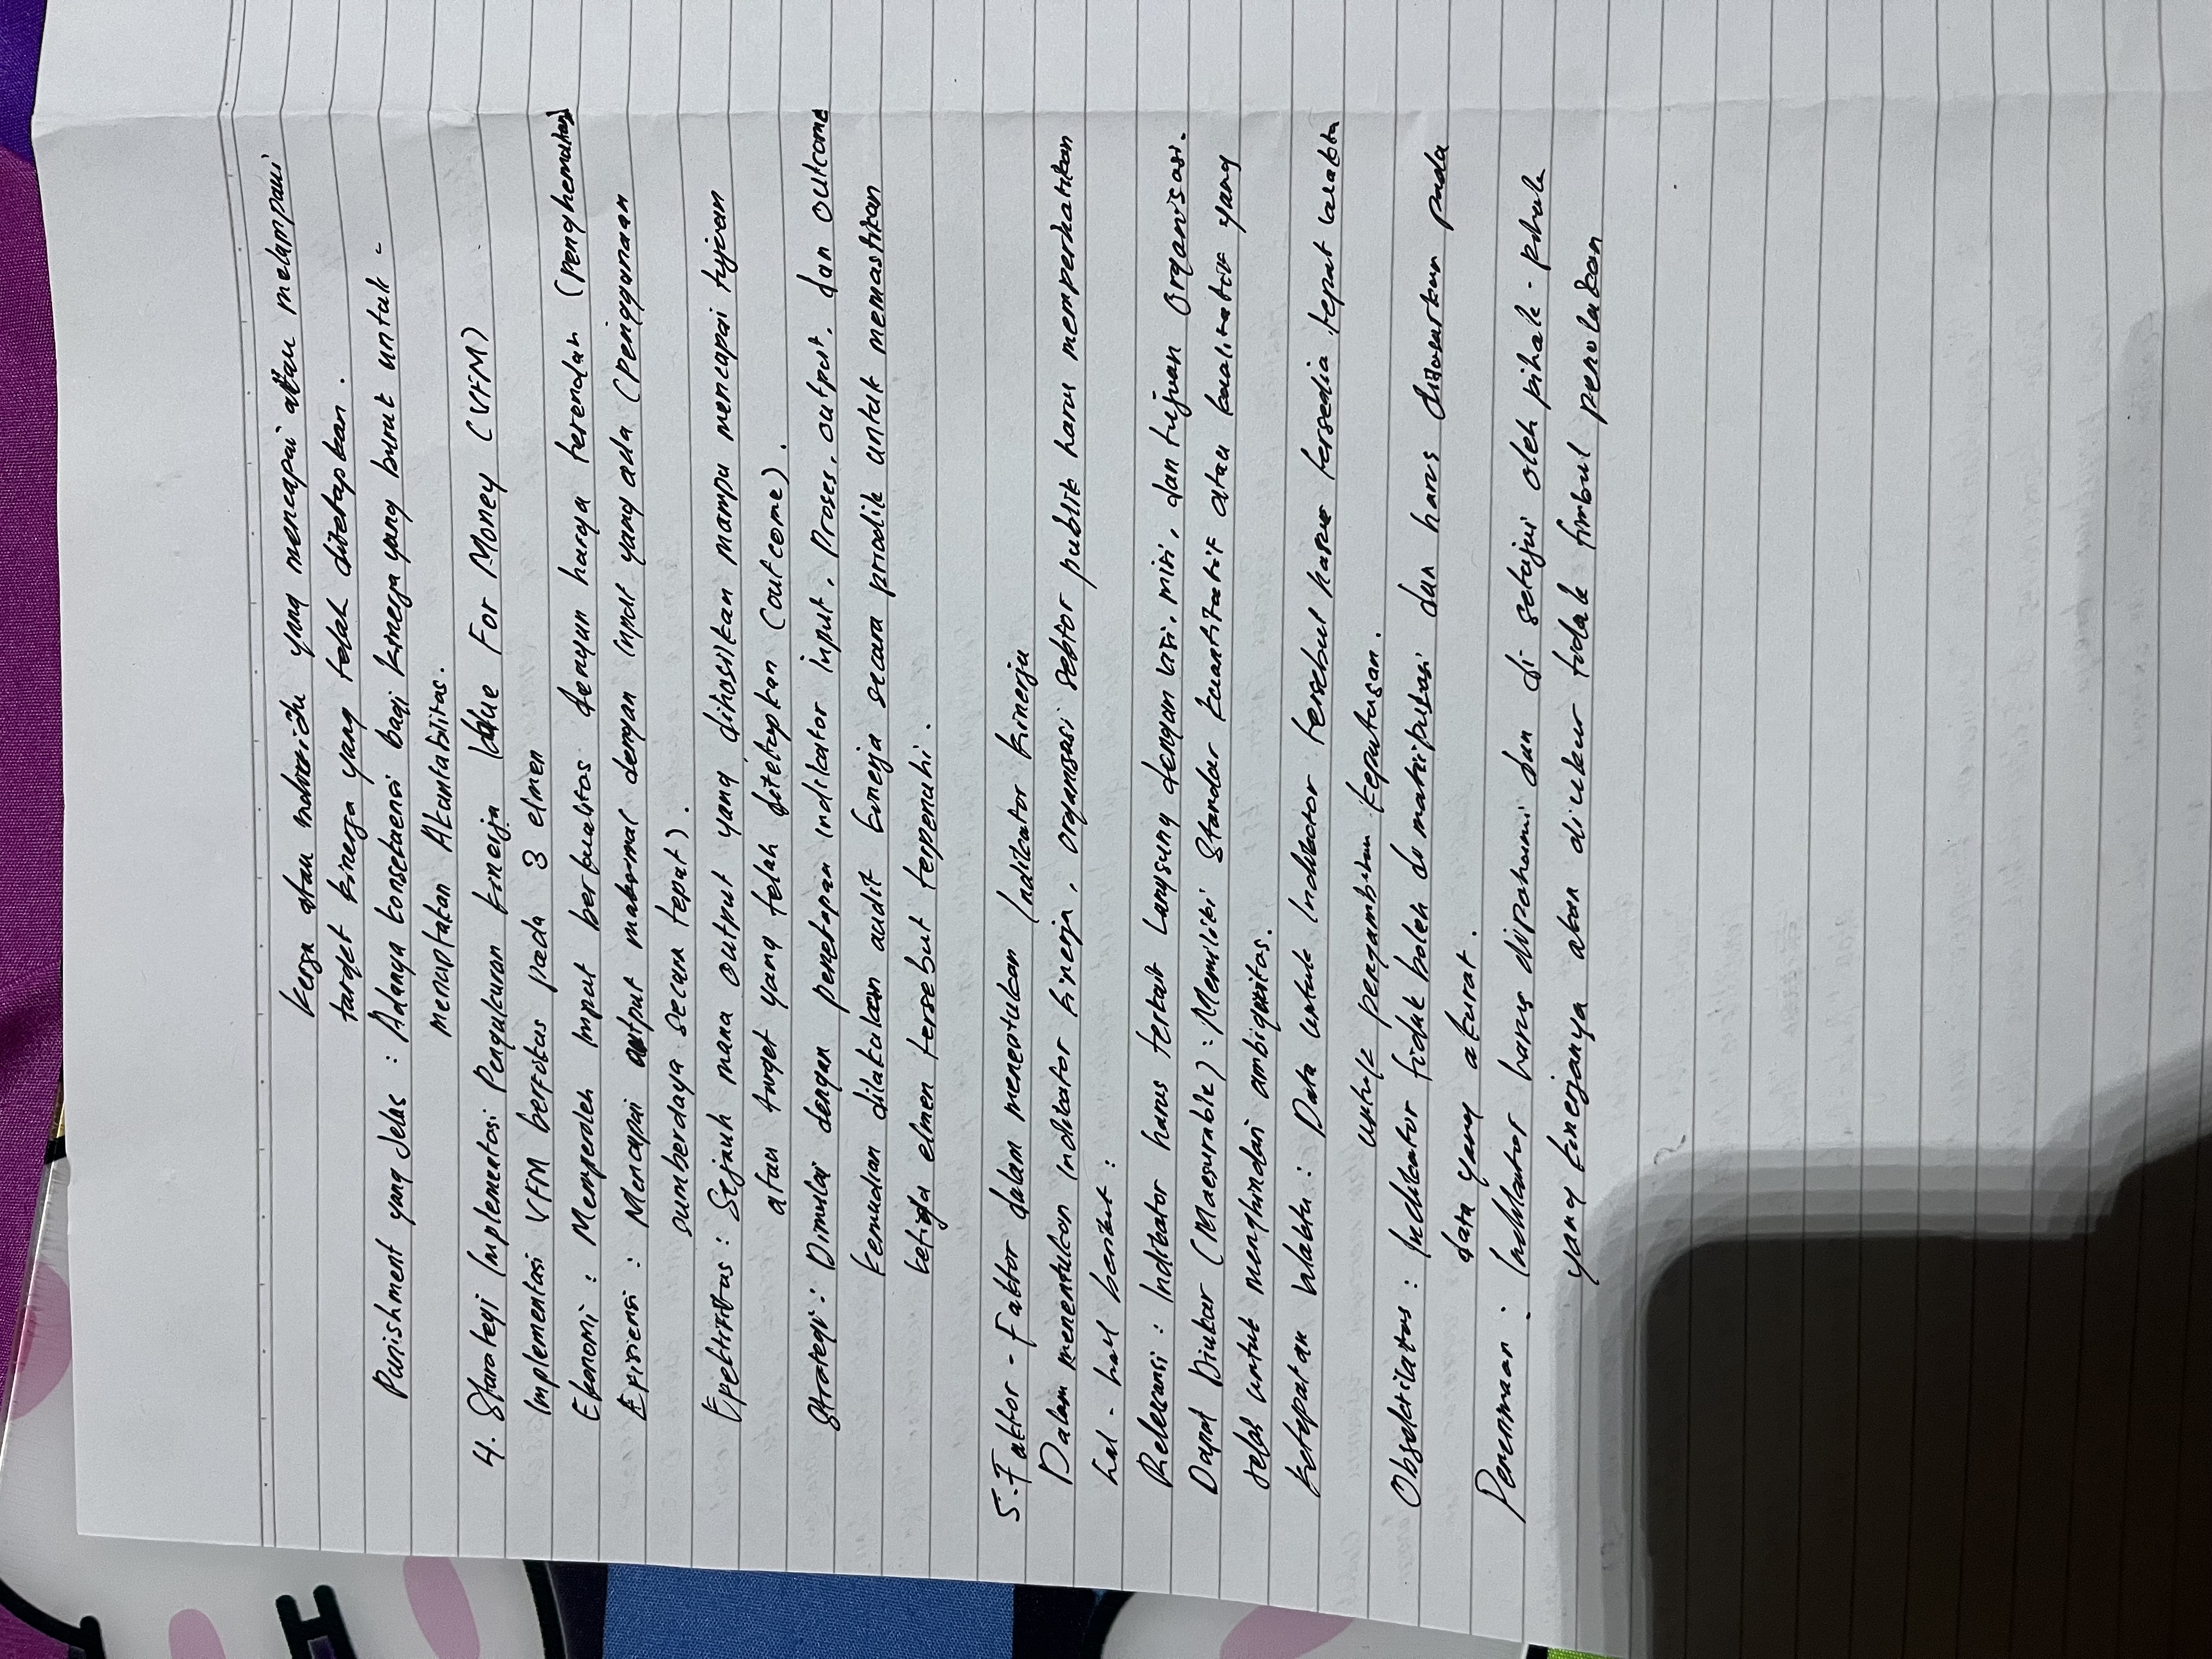 kerja atau individu yang mencapai atau melampaui
target kinerja yang telah ditetapkan.
Punishment yang Jelas : Adanya konsekuensi bagi kinerja yang buruk untuk -
menciptakan Akuntabilitas.
4. Starategi Implementasi Pengukuran kinerja Value For Money (VFM)
Implementasi VFM berfokus pada 3 elmen
Ekonomi : Memperoleh Input berkualitas dengan harga terendah (penghematan)
Efisiensi : Mencapai output maksimal dengan input yang ada (penggunaan
sumberdaya secara tepat).
Efektifitas : Sejauh mana output yang dihasilkan mampu mencapai tujuan
atau target yang telah ditetapkan (outcome).
Strategi : Dimulai dengan penetapan Indikator input, Proses, output, dan outcome
kemudian dilakukan audit kinerja secara priodik untuk memastikan
ketiga elmen tersebut terpenuhi.
5. Faktor - faktor dalam menentukan Indikator kinerja
Dalam menentukan Indikator kinerja, organisasi sektor publik harus memperhatikan
hal - hal berikut :
Relevansi : Indikator harus terkait Langsung dengan visi, misi, dan tujuan Organisasi.
Dapat Diukur (Maesurable) : Memiliki Standar kuantitatif atau kualitatif yang
jelas untuk menghindari ambiguitas.
ketepatan waktu : Data untuk Indikator tersebut harus tersedia tepat waktu
untuk pengambilan keputusan.
Obsektifitas : Indikator tidak boleh di manipulasi dan harus didasarkan pada
data yang akurat.
Penerimaan : Indikator harus dipahami dan di setujui oleh pihak - pihak
yang kinerjanya akan diukur tidak timbul penolakan